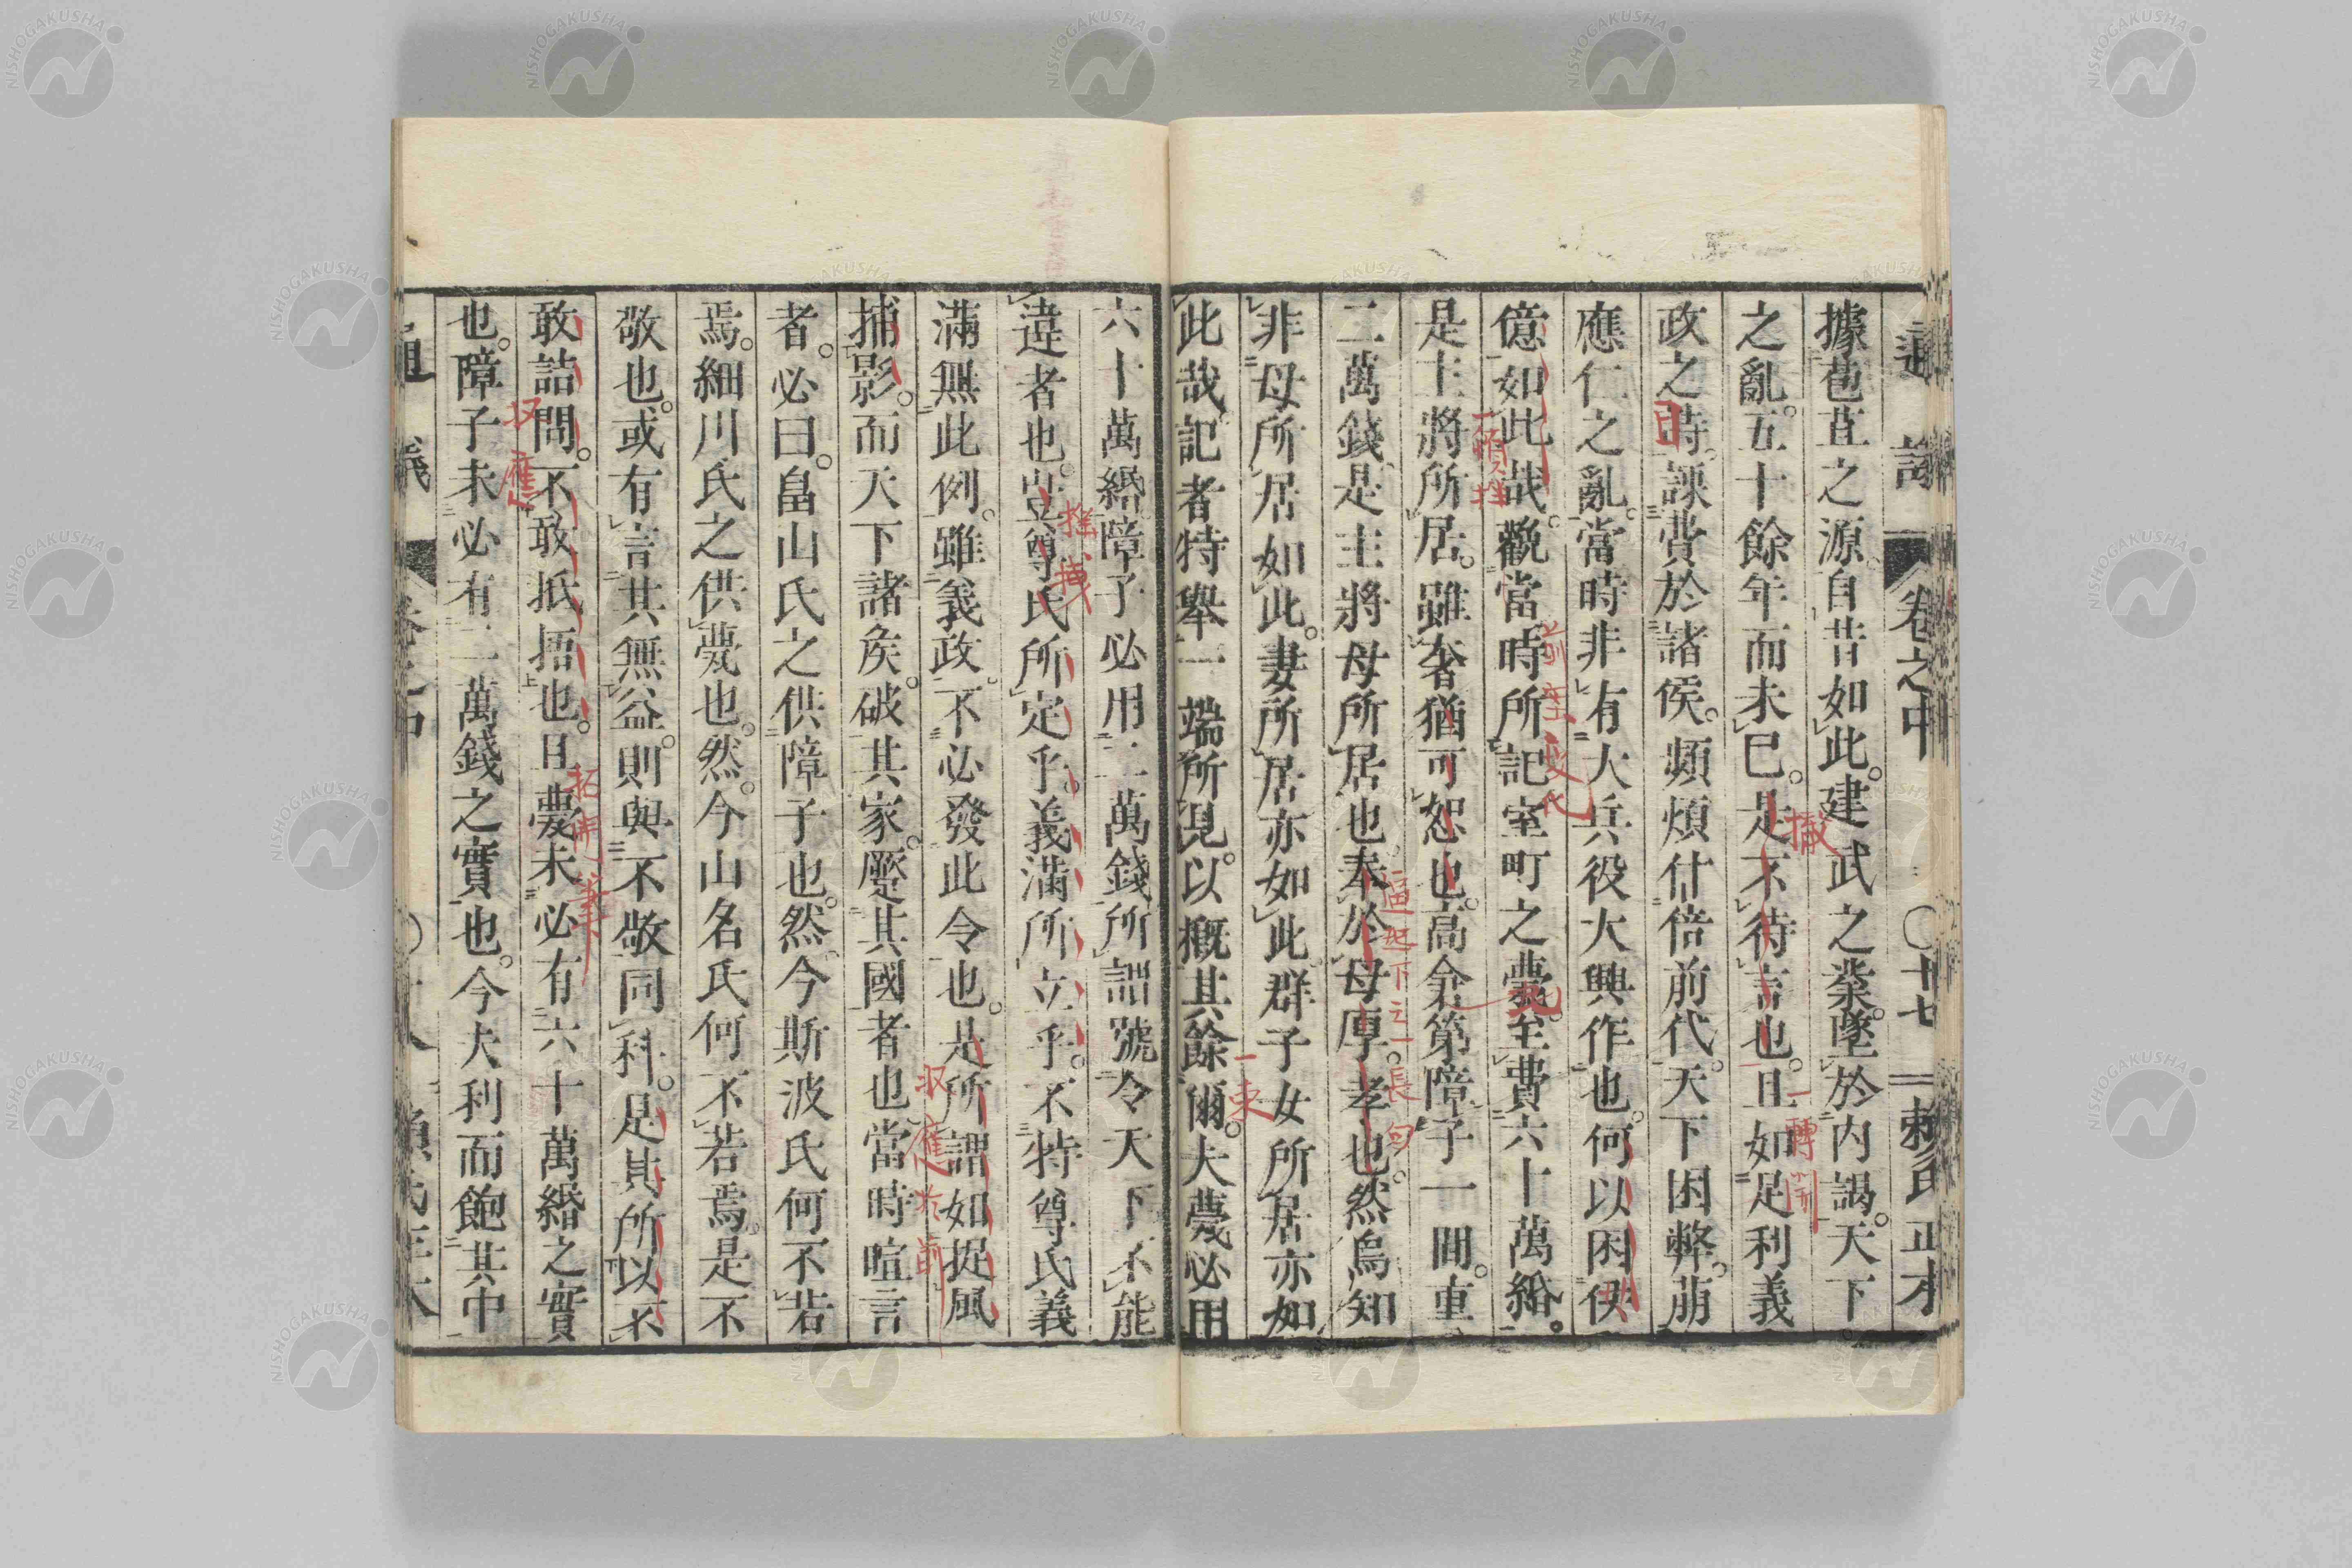 通議 卷之中 ○十七 賴氏正本
據苞苴之源。自昔如此。建武之業。墜於內謁。天下
之亂。五十餘年而未已。是不待言也。且如足利義
政之時。誅費於諸侯。頻煩什倍前代。天下困弊。萠
應仁之亂。當時非有大兵役大興作也。何以困伊
億如此哉。觀當時所記室町之甍。至費六十萬緡。
是主將所居。雖奢猶可恕也。高倉第障子一間。直
二萬錢。是主將母所居也。奉於母厚。孝也。然烏知
非母所居如此。妻所居亦如此。群子女所居亦如
此哉。記者特舉一端所見。以概其餘爾。夫甍必用
六十萬緡。障子必用二萬錢。所謂號令天下不能
違者也。豈尊氏所定乎。義滿所立乎。不特尊氏義
滿無此例。雖義政。不必發此令也。是所謂如捉風
捕影。而天下諸矦。破其家。蹙其國者也。當時喧言
者。必曰。畠山氏之供障子也。然今斯波氏何不若
焉。細川氏之供甍也。然。今山名氏何不若焉。是不
敬也。或有言其無益。則與不敬同科。是其所以不
敢詰問。不敢抵捂也。且甍未必有六十萬緡之實
也。障子未必有二萬錢之實也。今夫利而飽其中
撇
一轉開
前虛後
一頓挫
逼起下之一長句
一束
推拽
収應於前
拓開筆
収應